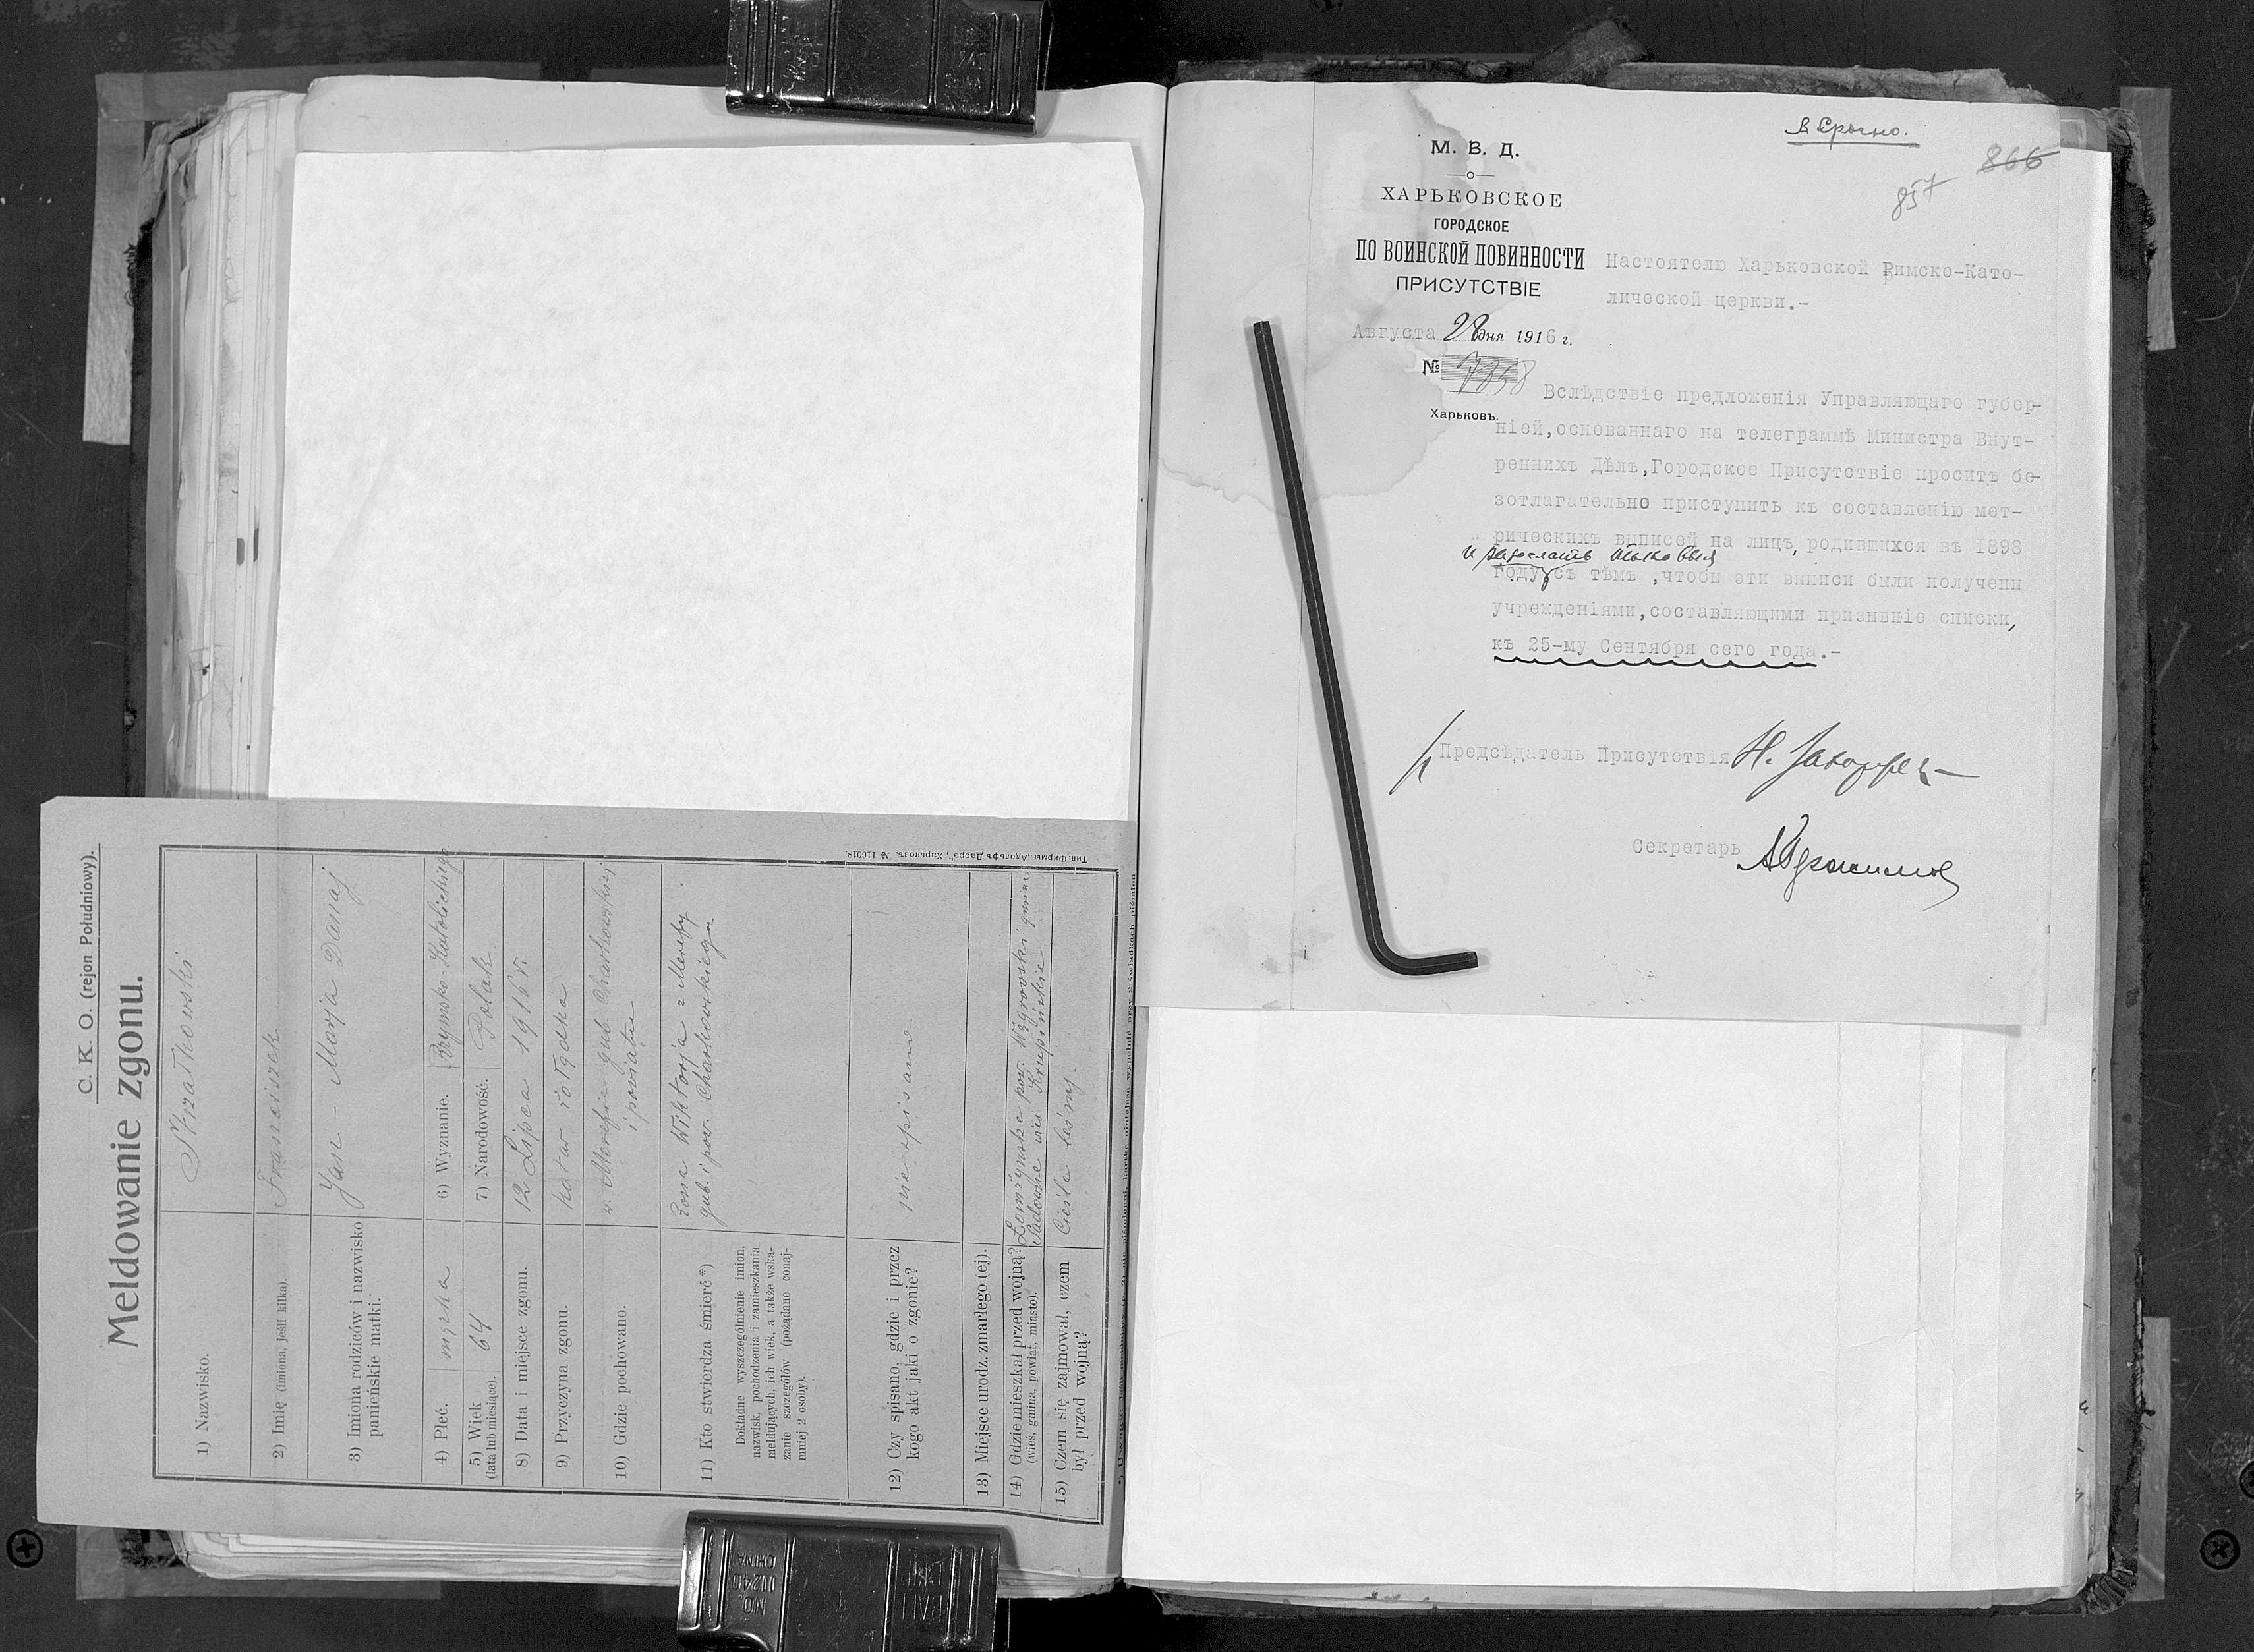 C. K. O. (rejon Południowy).
Meldowanie zgonu.
1) Nazwisko.
Strzałkowski
2) Imię (imiona, jeśli kilka).
Franciszek
3) Imiona rodziców i nazwisko
panieńskie matki.
Jan - Marja Danaj
4) Płeć.
męzka
6) Wyznanie.
Rzymsko Katolickiego
5) Wiek
(lata lub miesiące).
64
7) Narodowość.
Polak
8) Data i miejsce zgonu.
12 Lipca 1916 r.
9) Przyczyna zgonu.
katar żołądka
10) Gdzie pochowano.
w Merefie gub. Charkowskiej
i powiatu
11) Kto stwierdza śmierć*)
Dokładne wyszczególnienie imion,
nazwisk, pochodzenia i zamieszkania
meldujących, ich wiek, a także wska-
zanie szczegółów (pożądane conaj-
mniej 2 osoby).
żona Wiktorja z Merefy
gub. i pow. Charkowskiego
12) Czy spisano, gdzie i przez
kogo akt jaki o zgonie?
nie spisano
13) Miejsce urodz. zmarłego (ej).
14) Gdzie mieszkał przed wojną?
(wieś, gmina, powiat, miasto).
Łomżyńske pow. Węgrowski gmina
Sadowne wieś Krupińskie
15) Czem się zajmował, czem
był przed wojną?
Cieśla leśny
Тип. Фирмы „Адольфъ Дарре", Харьковъ. № 116018.
М. В. Д.
ХАРЬКОВСКОЕ
ГОРОДСКОЕ
ПО ВОИНСКОЙ ПОВИННОСТИ
ПРИСУТСТВІЕ
Августа 28 дня 1916 г.
№ 7858
Харьковъ.
Срочно.
866
857
Настоятелю Харьковской Римско-Като-
лической церкви.-
Вслѣдствіе предложенія Управляющаго губер-
ніей,основаннаго на телеграммѣ Министра Внут-
реннихъ Дѣлъ,Городское Присутствіе проситъ бе-
зотлагательно приступить къ составленію мет-
рическихъ выписей на лицъ, родившихся въ 1898
и разослать таковыя
году,съ тѣмъ ,чтобы эти выписи были получены
учрежденіями,составляющими призывніе списки,
къ 25-му Сентября сего года.-
Предсѣдатель Присутствія
Секретарь